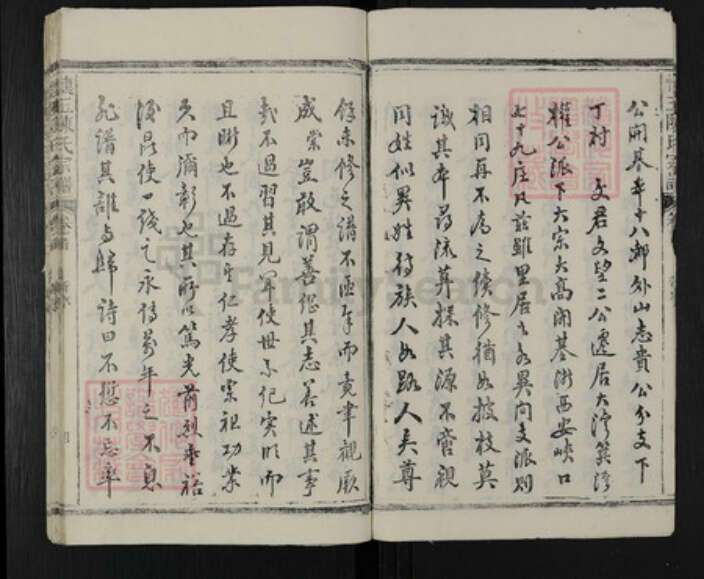 公開基平十八都外山志貴公分支下
丁村 文君文望二公遷居大灣箕
權公派下大宗大高開基浙西安峽口
七十九庄凡茲雖里居各異同支派別
相同再不為之續修猶如披枝莫
識其本尋流莫探其源不啻視
同姓似異姓待族人如路人矣尊
餘未修之譜不匝年而竟聿觀厥
成崇豈敢謂善繼其志善述其事
哉不過習其見聞使世系紀實明而
且晰也不過存乎仁孝使宗祖功業
久而彌彰也其所以篤光前烈垂裕
後昆使一線之永傳萬年之不息
非譜其誰與歸詩曰不愆不忘率
陳氏宗譜
FamilySearch